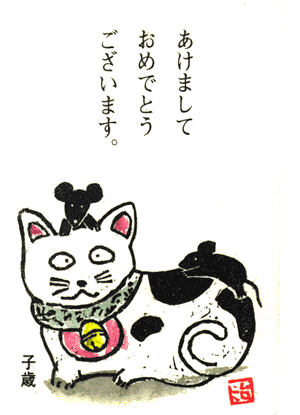 あけまして
おめでとう
ございます。
子歳